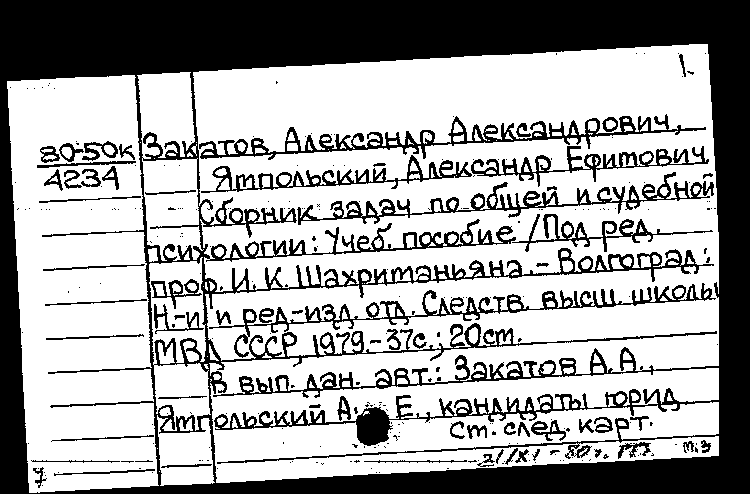 1.
80-50к Закатов, Александр Александрович,
4234 Ямпольский, Александр Ефимович.
Сборник задач по общей и судебной
психологии: Учеб. пособие / Под ред.
проф. И. К. Шахриманьяна. - Волгоград:
Н.-и. и ред.-изд. отд. Следств. высш. школы
МВД СССР, 1979. - 37с.; 20см.
В вып. дан. авт.: Закатов А. А.,
Ямпольский А. Е., кандидаты юрид.
См. след. карт.
7